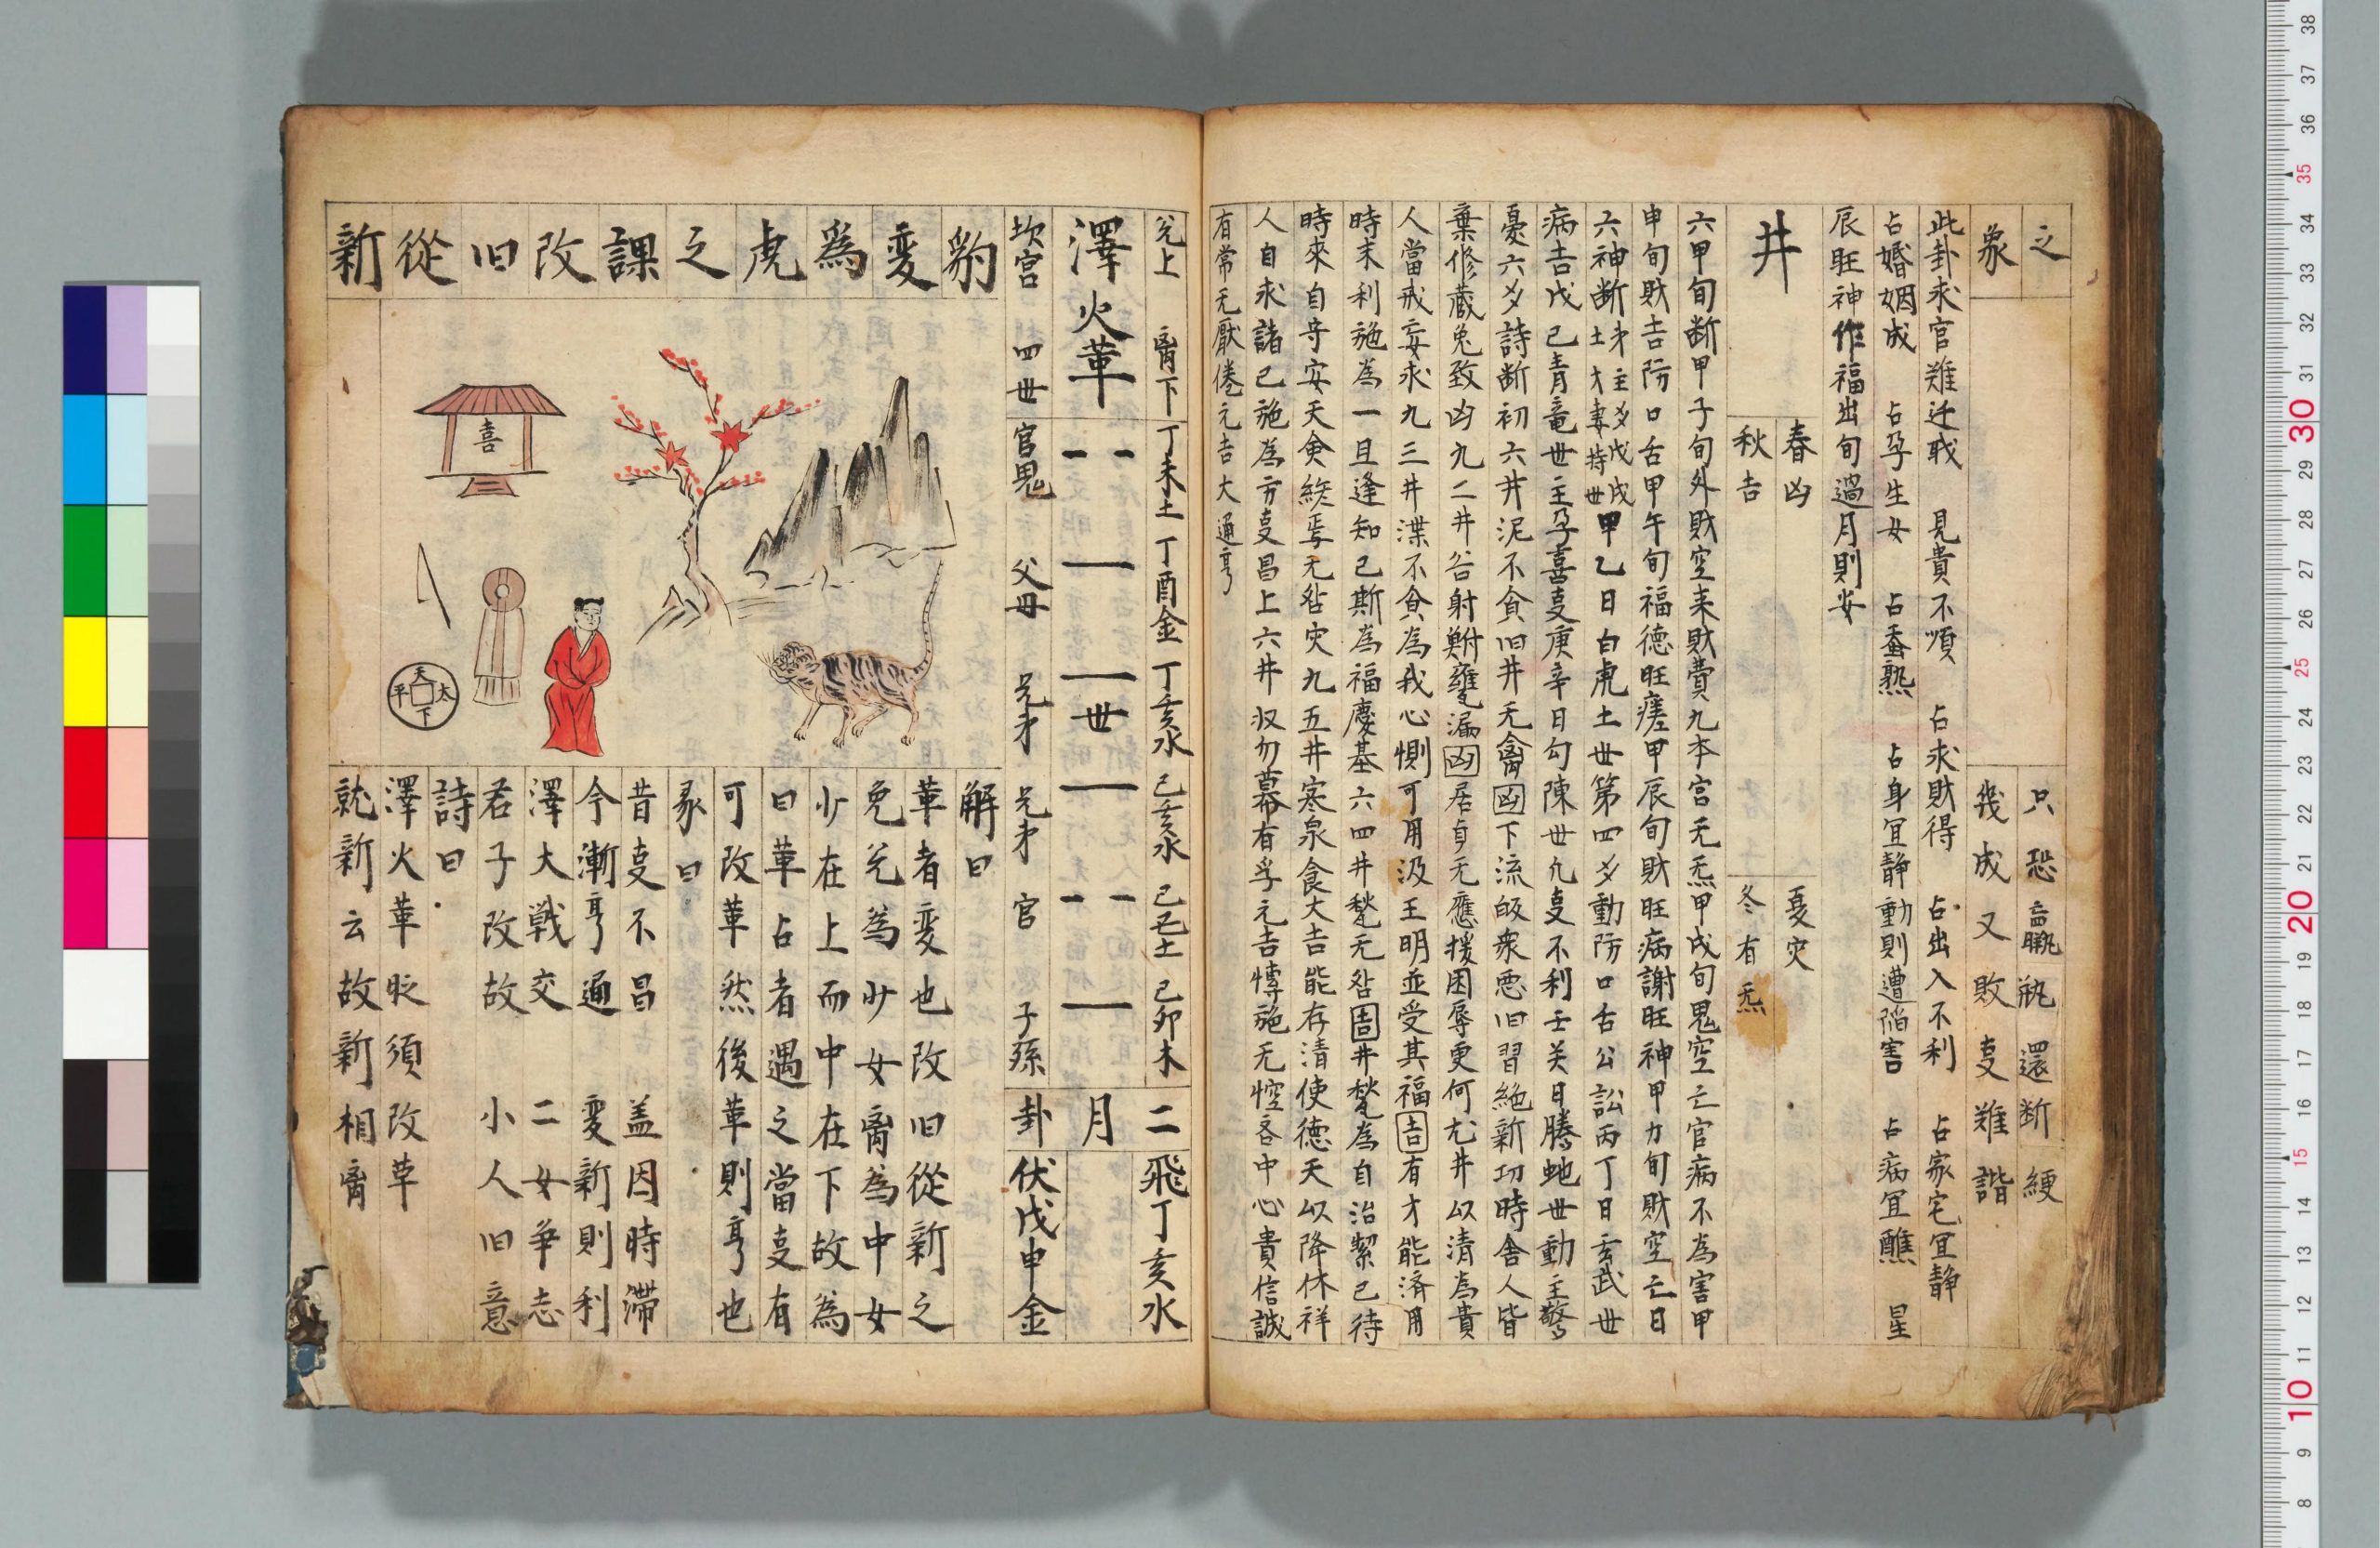 之
象
只恐羸瓶還断綆
幾成又敗事難諧
此卦求官难迁戢 見貴不順 占求財得 占出入不利 占家宅宜静
占婚姻成 占孕生女 占蚕熟 占身宜静動則遭陷害 占病宜醮 星
辰旺神作福出旬過月則安
井
春凶
秋吉
夏灾
冬有炁
六甲旬断甲子旬外財空来財費九本宮无炁甲戌旬鬼空亡官病不為害甲
申旬財吉防口舌甲午旬福徳旺瘥甲辰旬財旺病謝旺神甲力旬財空亡日
六神断 甲乙日白虎土世第四爻動防口舌公訟丙丁日玄武世
病吉戊己青竜世主孕喜事庚辛日勾陳世九事不利壬关日騰虵世動主驚
憂六爻詩断初六井泥不食旧井无禽凶下流皈衆悪旧習絶新功時舎人皆
棄修蔵兔致凶九二井谷射鮒甕漏凶居貞无應援困辱更何尤井以清為貴
人當戒妄求九三井渫不食為我心惻可用汲王明並受其福吉有才能済用
時未利施為一旦逢知己斯為福慶基六四井甃无咎固井甃為自治絜己待
時來自守安天命終焉无咎灾九五井寒泉食大吉能存清使德天以降休祥
人自求諸己施為方事昌上六井収勿幕有孚元吉慱施无悭吝中心貴信誠
有常无厭倦元吉大通亨
兊上 离下 丁未土 丁酉金 丁亥水 己亥水 己丑土 己卯木
飛丁亥水
澤火革
世
二月卦
坎宮 四世 官鬼 父母 兄弟 兄弟 官 子孫
伏戊申金
豹変為虎之課改旧從新
喜
天下太平
解曰
革者変也改旧從新之
兔兊為少女离為中女
少在上而中在下故為
曰革占者遇之當事有
可改革然後革則亨也
彖曰
昔事不昌 盖因時滞
今漸亨通 変新則利
澤大戦交 二女争志
君子改故 小人旧意
詩曰
澤火革眨須改草
就新云故新相离